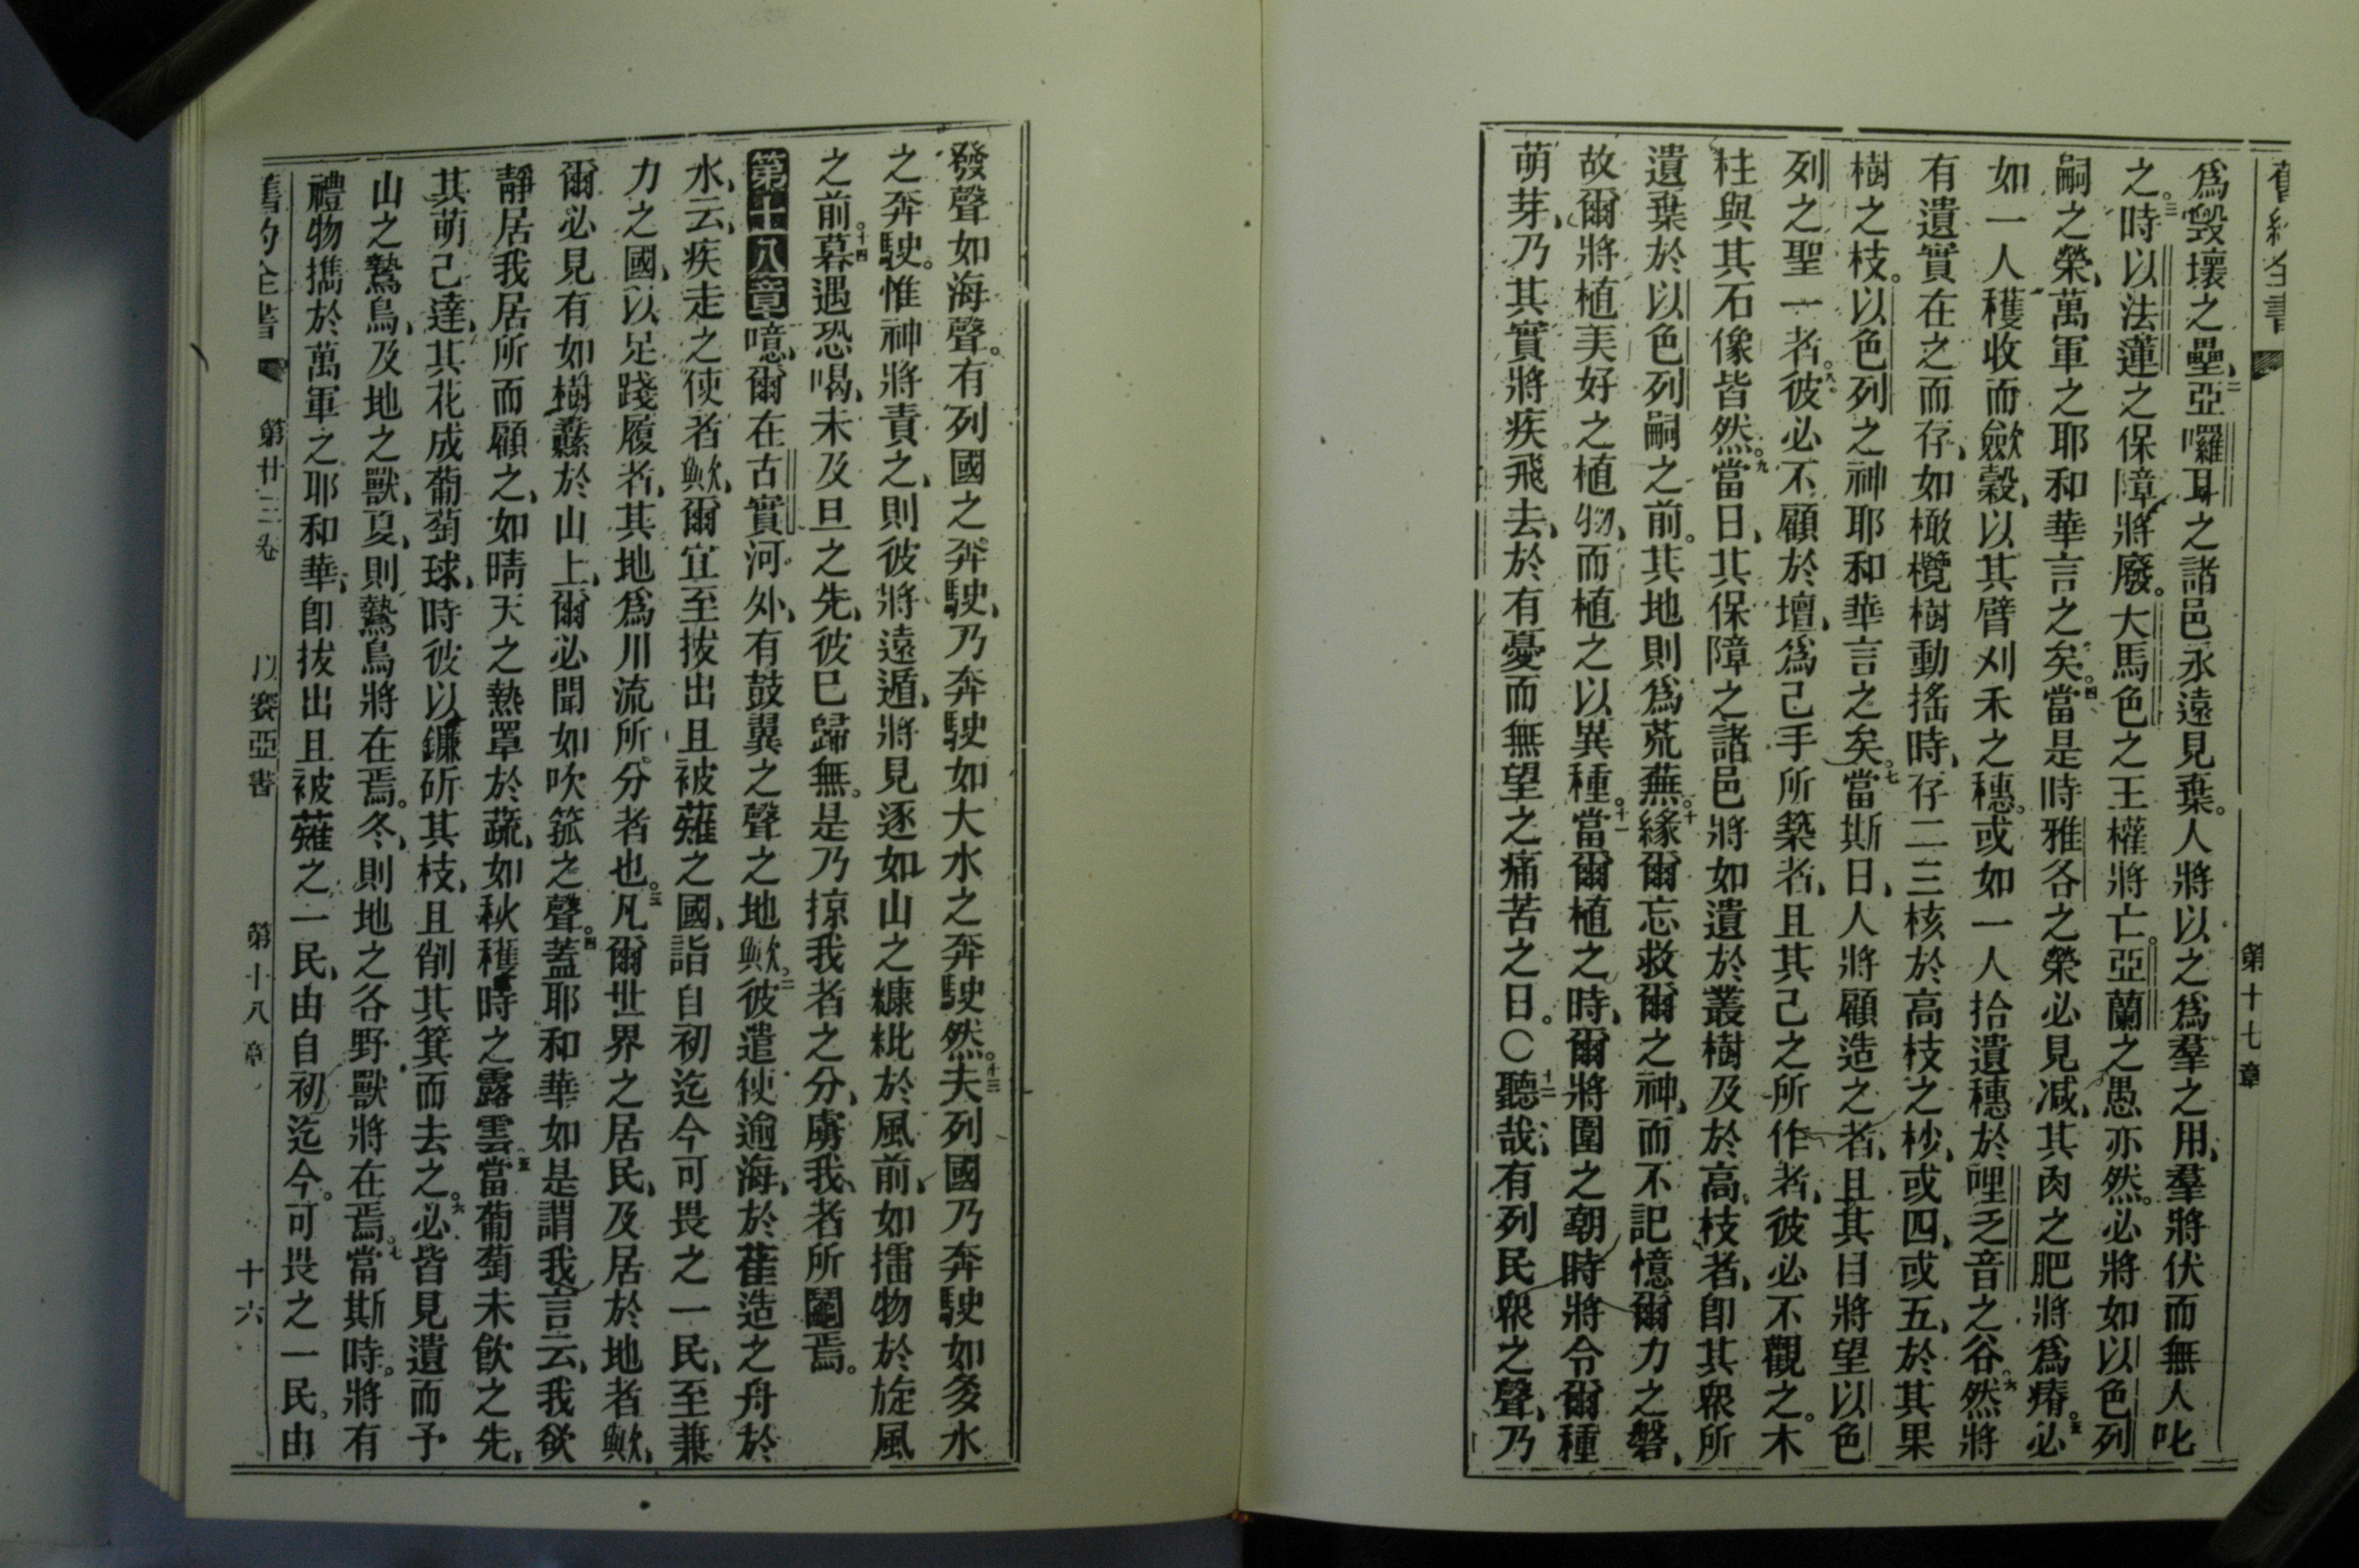 舊約全書 第十七章
爲毀壞之壘、二亞囉耳之諸邑永遠見棄。人將以之爲羣之用、羣將伏而無人叱
之。三時以法蓮之保障將廢。大馬色之王權將亡。亞蘭之愚亦然。必將如以色列
嗣之榮、萬軍之耶和華言之矣。四當是時雅各之榮必見減、其肉之肥將爲瘠。五必
如一人穫收而歛穀、以其臂刈禾之穗。或如一人拾遺穗於哩乏音之谷。六然將
有遺實在之而存、如橄欖樹動搖時、存二三核於高枝之杪、或四、或五、於其果
樹之枝。以色列之神耶和華言之矣。七當斯日、人將顧造之者、且其目將望以色
列之聖一者。八彼必不顧於壇、爲己手所築者、且其己之所作者、彼必不觀之。木
柱與其石像皆然。九當日、其保障之諸邑將如遺於叢樹及於高枝者、卽其衆所
遺棄於以色列嗣之前。其地則爲荒蕪。十緣爾忘救爾之神、而不記憶爾力之磐、
故爾將植美好之植物、而植之以異種。十一當爾植之時、爾將圍之朝時將令爾種
萌芽、乃其實將疾飛去、於有憂而無望之痛苦之日。〇十二聽哉、有列民衆之聲、乃
發聲如海聲。有列國之奔駛、乃奔駛如大水之奔駛然。十三夫列國乃奔駛如多水
之奔駛。惟神將責之、則彼將遠遁、將見逐如山之糠粃於風前、如擂物於旋風
之前。十四暮遇恐喝、未及旦之先、彼已歸無。是乃掠我者之分、虜我者所鬮焉。
第十八章噫、爾在古實河外、有鼓翼之聲之地歟。二彼遣使逾海、於萑造之舟於
水、云、疾走之使者歟、爾宜至拔出且被薙之國、詣自初迄今可畏之一民、至兼
力之國、以足踐履者、其地爲川流所分者也。三凡爾世界之居民、及居於地者歟、
爾必見有如樹纛於山上、爾必聞如吹箛之聲。四蓋耶和華如是謂我言云、我欲
靜居我居所而顧之、如晴天之熱罩於蔬、如秋穫時之露雲。五當葡萄未飮之先、
其萌己達、其花成葡萄球、時彼以鐮斫其枝、且削其箕而去之。六必皆見遺而予
山之鷙鳥、及地之獸、夏、則鷙鳥將在焉。冬、則地之各野獸將在焉。七當斯時。將有
禮物擕於萬軍之耶和華、卽拔出且被薙之一民、由自初迄今。可畏之一民。由
舊約全書 第廿三卷 以賽亞書 第十八章 十六